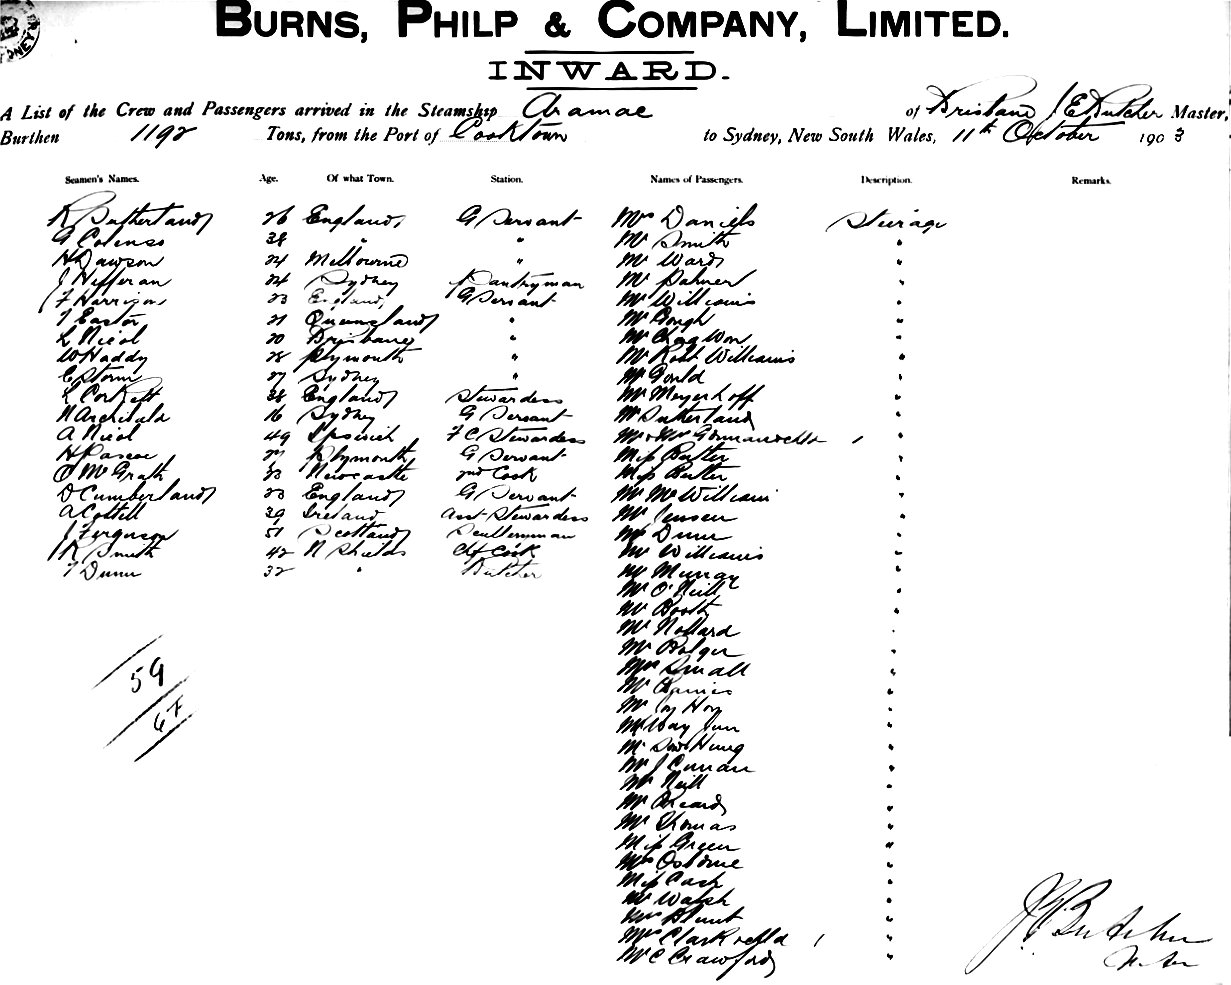 BURNS, PHILP & COMPANY, LIMITED.
INWARD.
A List of the Crew and Passengers arrived in the Steamship Aramac of Brisbane J E Butcher Master,
Burthen 1192 Tons, from the Port of Cooktown to Sydney, New South Wales, 11th October 1903
Seamen's Names. Age. Of what Town. Station. Names of Passengers. Description. Remarks.
R Sutherland 26 England G Servant Mrs Daniels Steerage
G Colenso 38 " " Mr Smith "
H Dawson 24 Melbourne " Mr Ward "
J Hefferan 24 Sydney Pantryman Mr Palmer "
F Harrison 23 England G Servant Mr Williams "
T Easton 21 Queensland " Mr Gough "
L Nicol 20 Brisbane " Mr "
W Haddy 28 Plymouth " Mr Robt Williams "
E Storm 27 Sydney " Mr Gould "
L Corkett 38 England Stewardess Mr Meyerhoff "
N Archibald 16 Sydney G Servant Mr Sutherland "
A Nicol 49 Ipswich F C Stewardess Mr & Mrs "
H Pascoe 27 Plymouth G Servant Miss Butler "
O McGrath 23 Newcastle 2nd Cook Miss Butler "
D Cumberland 23 England G Servant Mr McWilliam "
A Cottell 39 Ireland Asst Stewardess Mr Jensen "
J Ferguson 51 Scotland Scullerman Mr Dunn "
R Smith 42 N Shields Chf Cook Mr Williams "
T Dunn 32 " Butcher Mr Murray "
Mr O'Neill "
Mr Booth "
Mr Nollard "
Mr Bolger "
Mrs Small "
Mr "
Mr Hoy "
Mr Way "
Mr Hung "
Mr J Curran "
Mr Neill "
Mr "
Mr Thomas "
Miss Green "
Mrs Osborne "
Miss Cash "
Mr Walsh "
Mrs Blunt "
Mrs Clark & Chld "
Mr C Crawford "
59
67
J E Butcher
Master